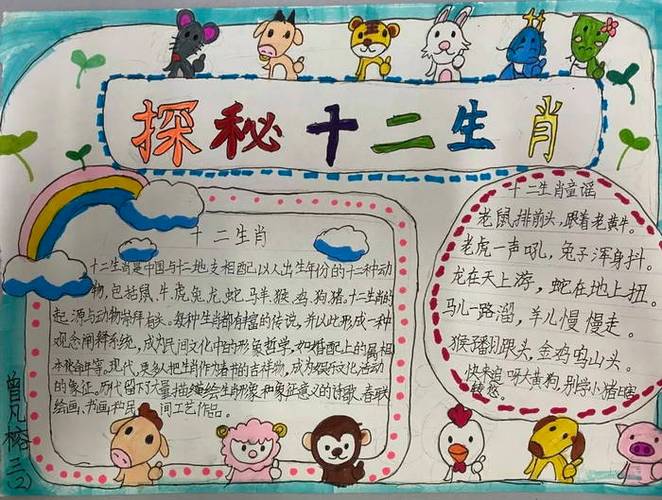 探秘十二生肖
十二生肖
十二生肖是中国与十二地支相配以人出生年份的十二种动
物,包括鼠、牛、虎、兔、龙、蛇、马、羊、猴、鸡、狗、猪。十二生肖的
起源与动物崇拜有关。每种生肖都有丰富的传说,并以此形成一种
观念阐释系统,成为民间文化中的形象哲学,如婚配上的属相
命年等。现代,更多人把生肖作为春节的吉祥物,成为娱乐文化活动
的象征。历代留下了大量描绘生肖形象和象征意义的诗歌、春联
绘画、书画和民间工艺作品。
十二生肖童谣
老鼠排前头,跟着老黄牛。
老虎一声吼,兔子浑身抖。
龙在天上游,蛇在地上扭。
马儿一路溜,羊儿慢慢走。
猴子翻跟头,金鸡鸣山头。
快来追呀大黄狗,别学小猪瞎
转悠。
曾凡榕 三(2)